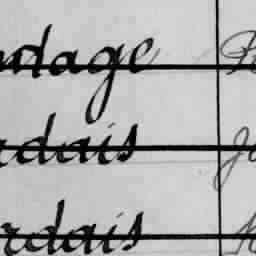 ndage
rdais
rdais